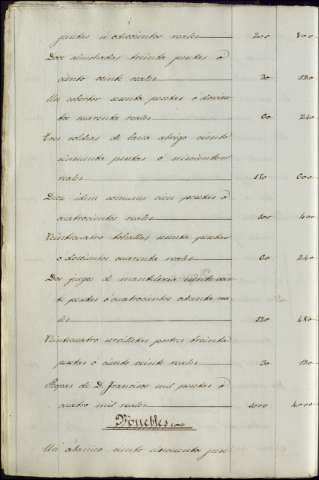 pesetas u ochocientos reales 200 800
Doce almohadas treinta pesetas ó
ciento veinte reales 30 120
Un cobertor sesenta pesetas ó doscien
tos cuarenta reales 60 240
Tres colchas de lana abrigo ciento
cincuenta pesetas ó seiscientos
reales 150 600
Doce idem comunes cien pesetas ó
cuatrocientos reales 100 400
Veinticuatro toballas sesenta pesetas
ó doscientos cuarenta reales 60 240
Dos juegos de mantelería ciento vein
te pesetas ó cuatrocientos ochenta rea
les 120 480
Veinticuatro servilletas postres treinta
pesetas ó ciento veinte reales 30 120
Ropas de D. Francisco mil pesetas ó
cuatro mil reales 1000 4000
Muebles
Un ciento cincuenta pese